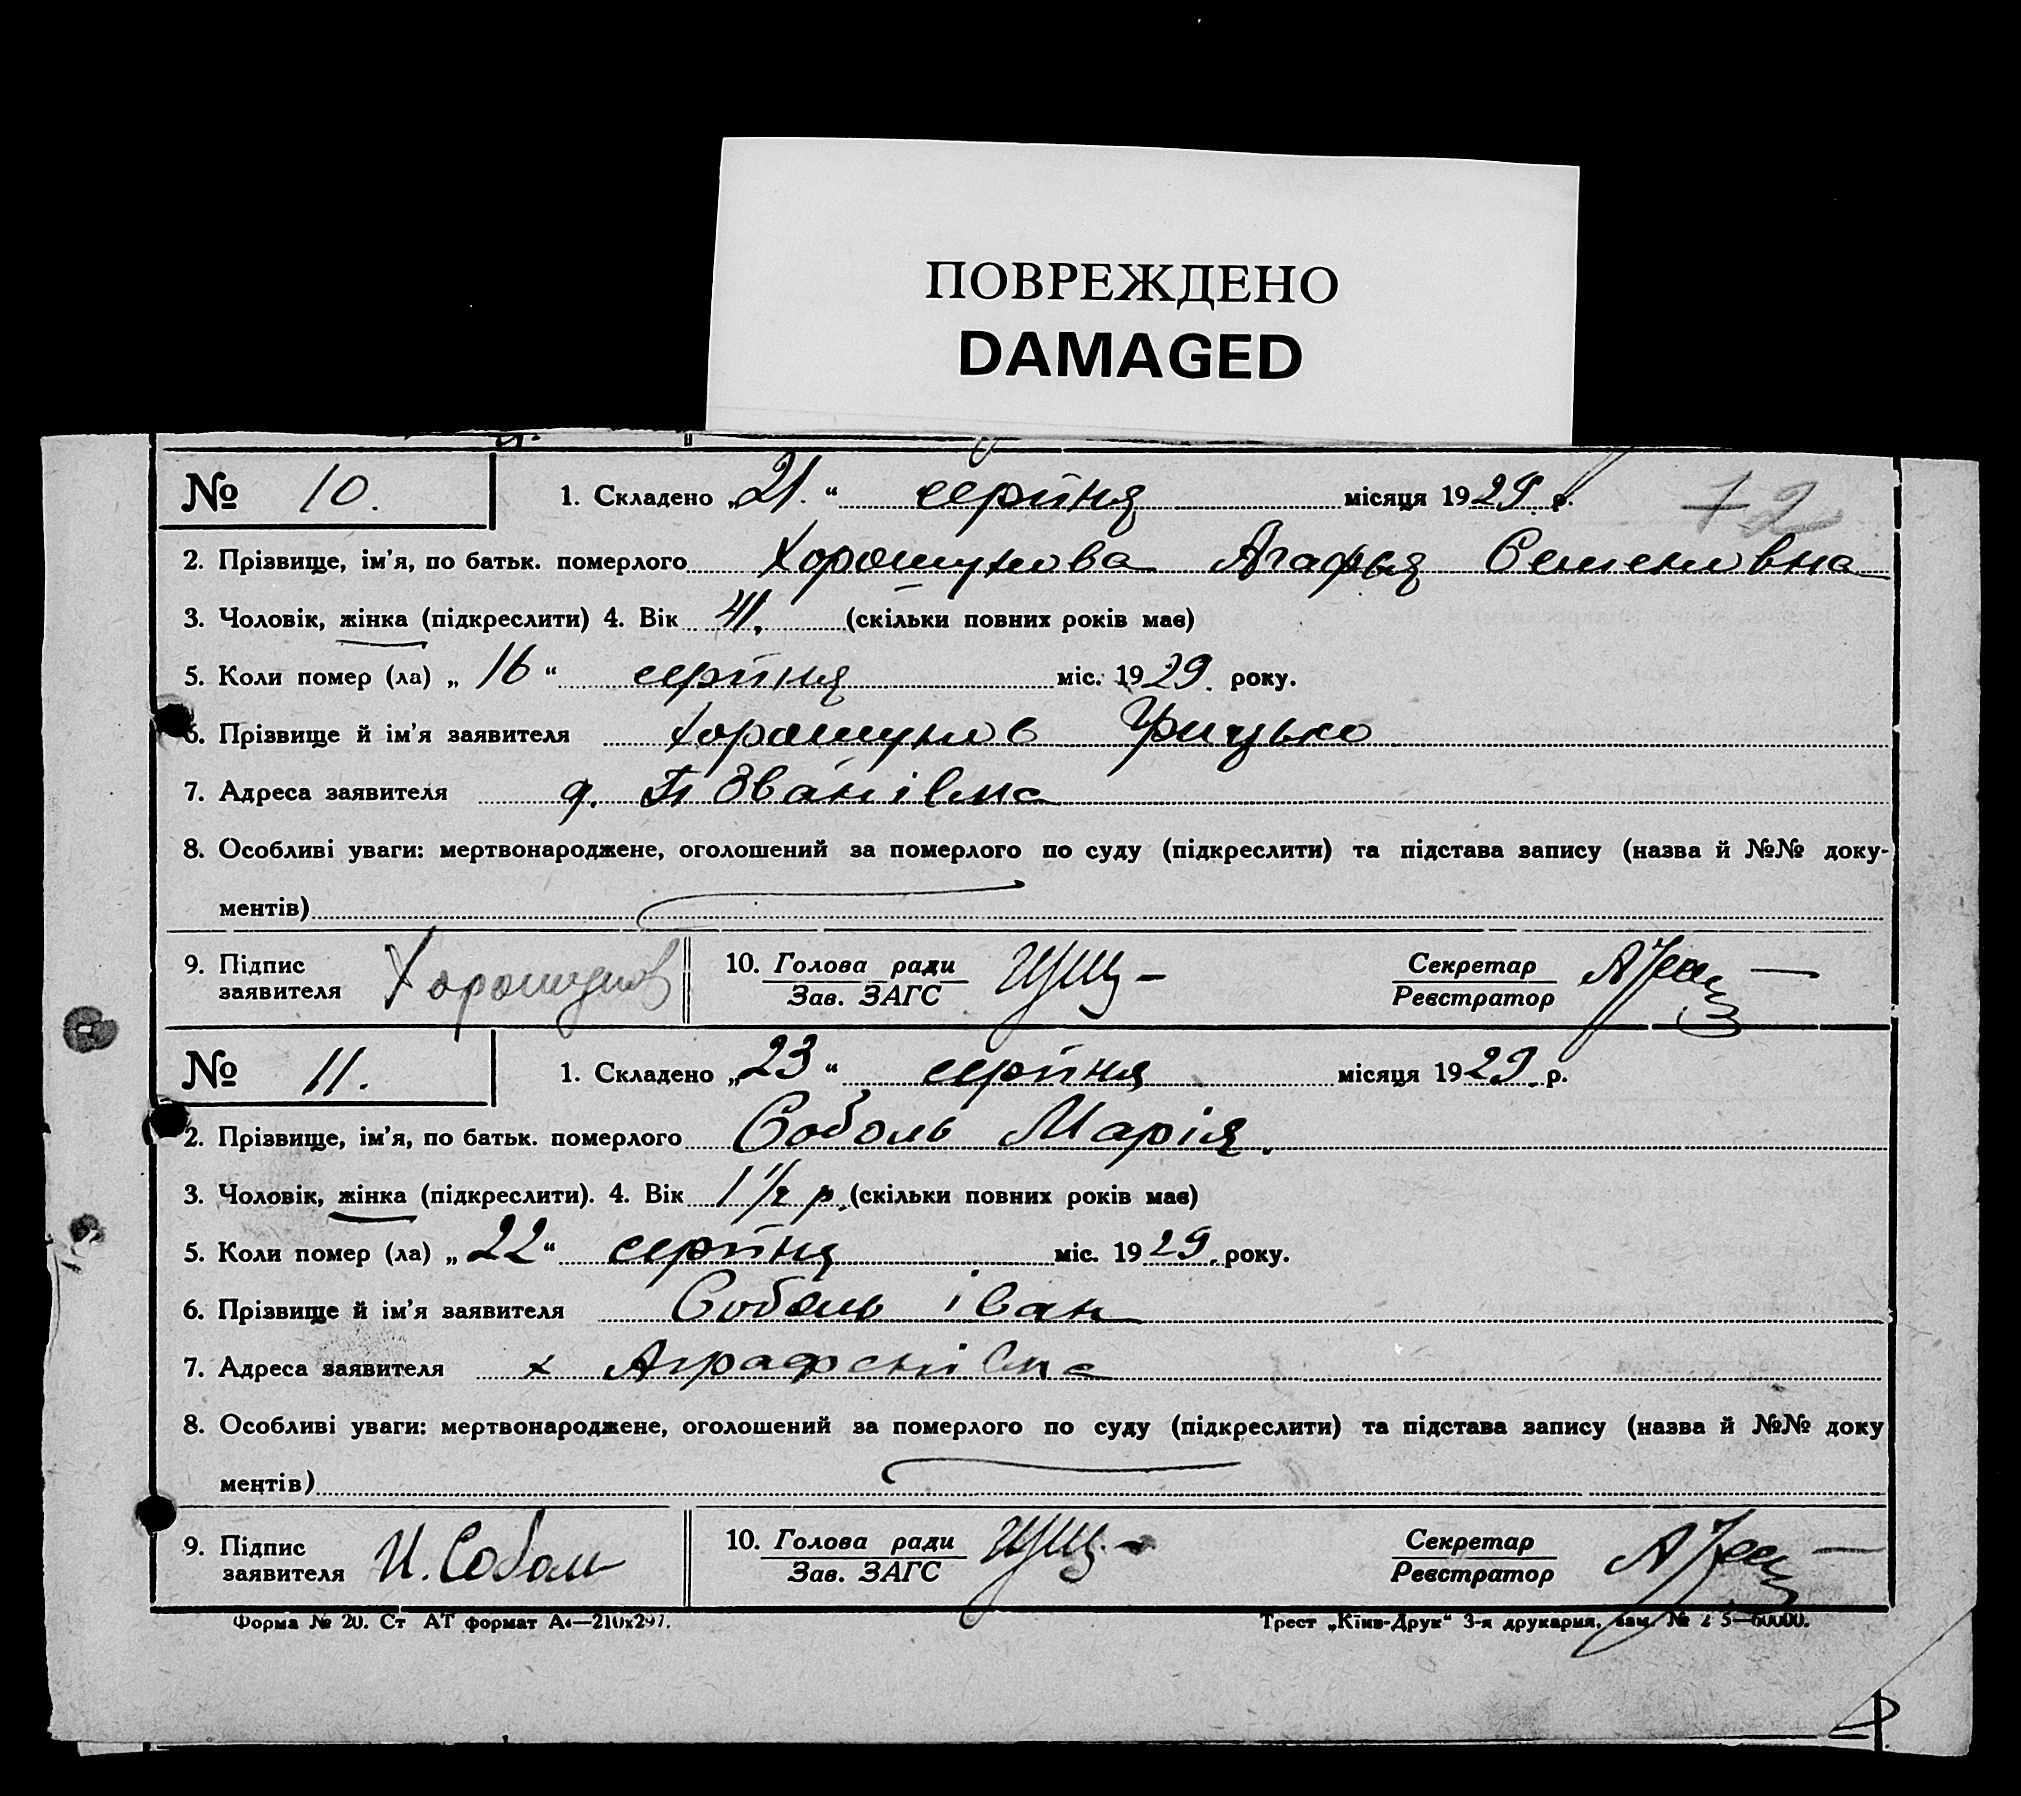 ПОВРЕЖДЕНО
DAMAGED
№ 10. 1. Складено „21.“ серпня місяця 1929. р. 72
2. Прізвище, ім'я, по батьк. померлого Хорошунова Агафья Семеновна
3. Чоловік, жінка (підкреслити) 4. Вік 41, (скільки повних років має)
5. Коли помер (ла) „16“ серпня міс. 1929. року.
6. Прізвище й ім'я заявителя Хорошунов Грицько
7. Адреса заявителя Званівка
8. Особливі уваги: мертвонароджене, оголошений за померлого по суду (підкреслити) та підстава запису (назва й №№ доку-
ментів)
9. Підпис заявителя Хорошунов 10. Голова ради Секретар
Зав. ЗАГС Реєстратор
№ 11. 1. Складено „23“ серпня місяця 1929. р.
2. Прізвище, ім'я, по батьк. померлого Соболь Марія.
3. Чоловік, жінка (підкреслити). 4. Вік 1 1/2 р. (скільки повних років має)
5. Коли помер (ла) „22“ серпня міс. 1929. року.
6. Прізвище й ім'я заявителя Соболь іван
7. Адреса заявителя х Аграфенівка
8. Особливі уваги: мертвонароджене, оголошений за померлого по суду (підкреслити) та підстава запису (назва й №№ доку
ментів)
9. Підпис заявителя И. Соболь 10. Голова ради Секретар
Зав. ЗАГС Реєстратор
Форма № 20. Ст АТ формат А4—210х297. Трест „Київ-Друк“ 3-я друкарня, зам. №